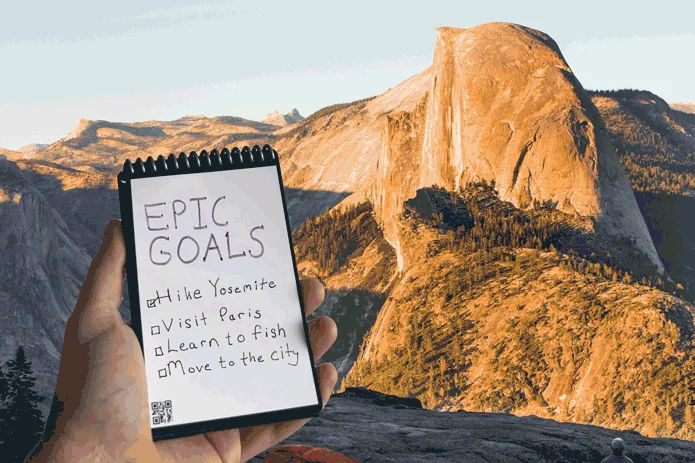 EPIC
GOALS
Hike Yosemite
Visit Paris
Learn to fish
Move to the city